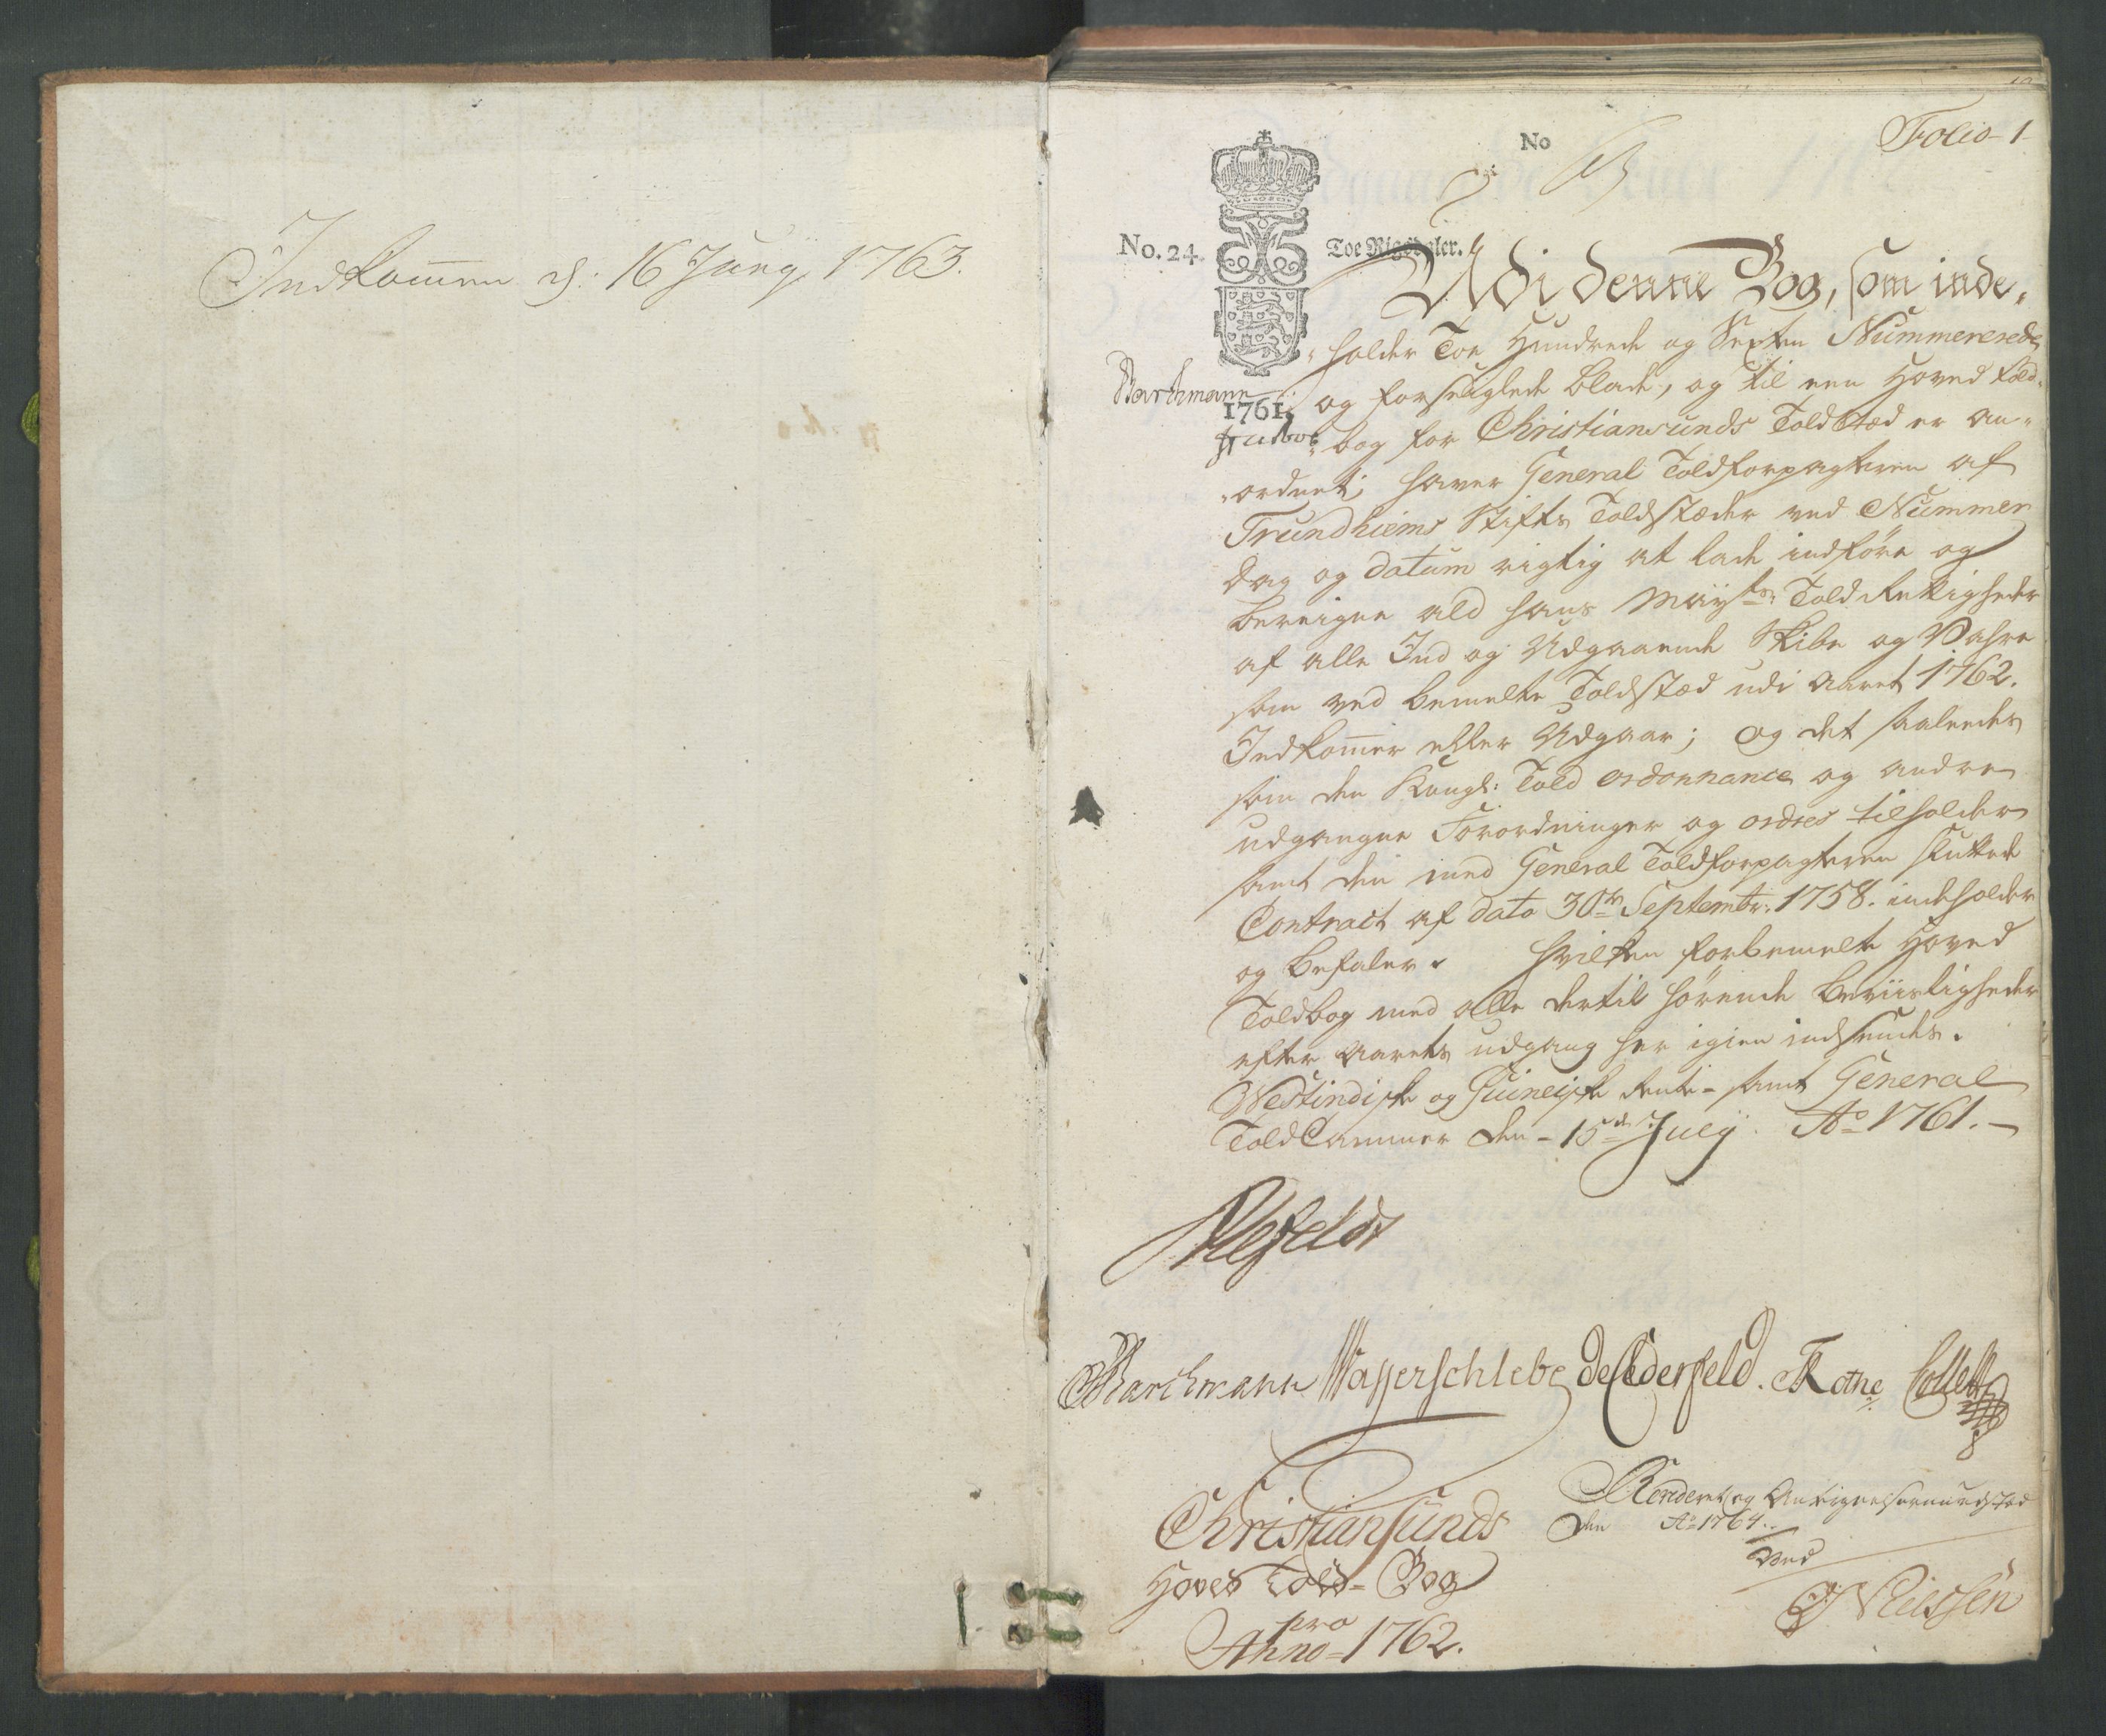 Indkom̄en d: 16 Juny 1763.
Folio-1-
No
No. 24.
Toe Rigsdaler.
Udi denne Bog, som inde-
-holder Toe Hundrede og Sexten Nummererede
Barchmann
1761.
og forseiglede Blade, og til een Hoved Told-
-bog for Christiansunds Toldsted er an-
-ordnet; haver General Toldforpagteren af
Trundhiems Stifts Toldstæder ved Nummer
dag og datum rigtig at lade indføre og
bereigne ald Hans Mayts: Told Rettigheder
af alle Ind og Udgaaende Skibe og Vahre
som ved bemelte Toldsted udi Aaret 1762.
Indkom̄er eller Udgaar; og det saaleedes
som den Kongl: Told ordonnance og andre
udgangne Forordninger og ordres tilholder
samt den med General Toldforpagteren sluttede
Contract af dato 30te Septembr: 1758. indeholder
og befaler. Hvilken forbemelte Hoved
Toldbog med alle dertil hørende Beviisligheder
efter Aarets udgang her igien indsendes.
Westindiske og Guineiske Rente- samt General
ToldCammer den- 15de July Ao 1761.-
Ahlefeldt
Barchmann Wasserschlebe de Cederfeld. Rothe Collett
Christiansunds
Hoved Told-Bog
pro
Anno 1762.
den Ao 1764.
ved
Nielssen